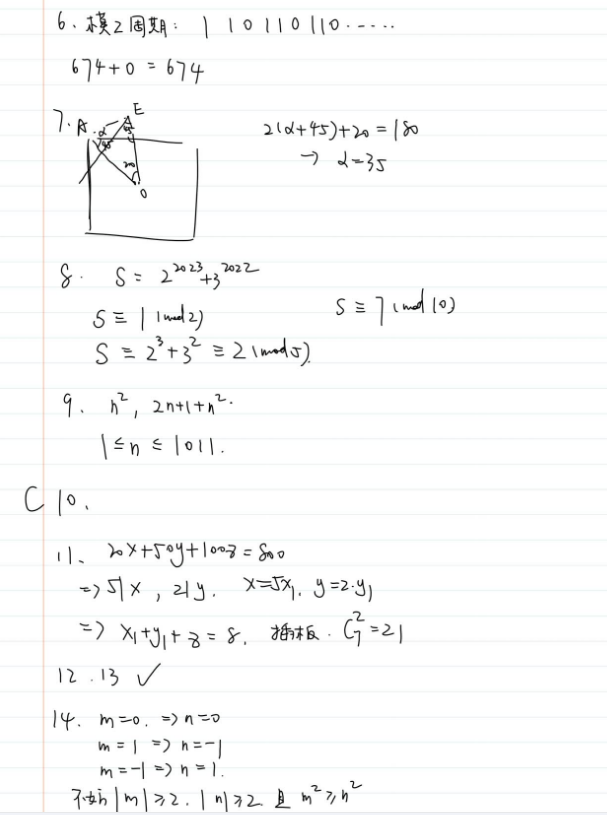 6、模2周期: 1 1 0 1 1 0 1 1 0 ......
674+0 = 674
7. A α E
45
20
O
2(α+45)+20=180
→ α=35
8. S = 2^2023+3^2022
S ≡ 1 (mod 2)
S ≡ 2^3+3^2 ≡ 2 (mod 5).
S ≡ 7 (mod 10)
9. n^2, 2n+1+n^2.
1 ≤ n ≤ 1011.
C 10.
11、 20x+50y+100z=800
=> 5|x , 2|y. x=5x₁. y=2·y₁
=> x₁+y₁+z=8. 插板. C_7^2=21
12.13 ✓
14. m=0. => n=0
m=1 => n=-1
m=-1 => n=1.
不妨 |m|≥2. |n|≥2 且 m^2≥n^2